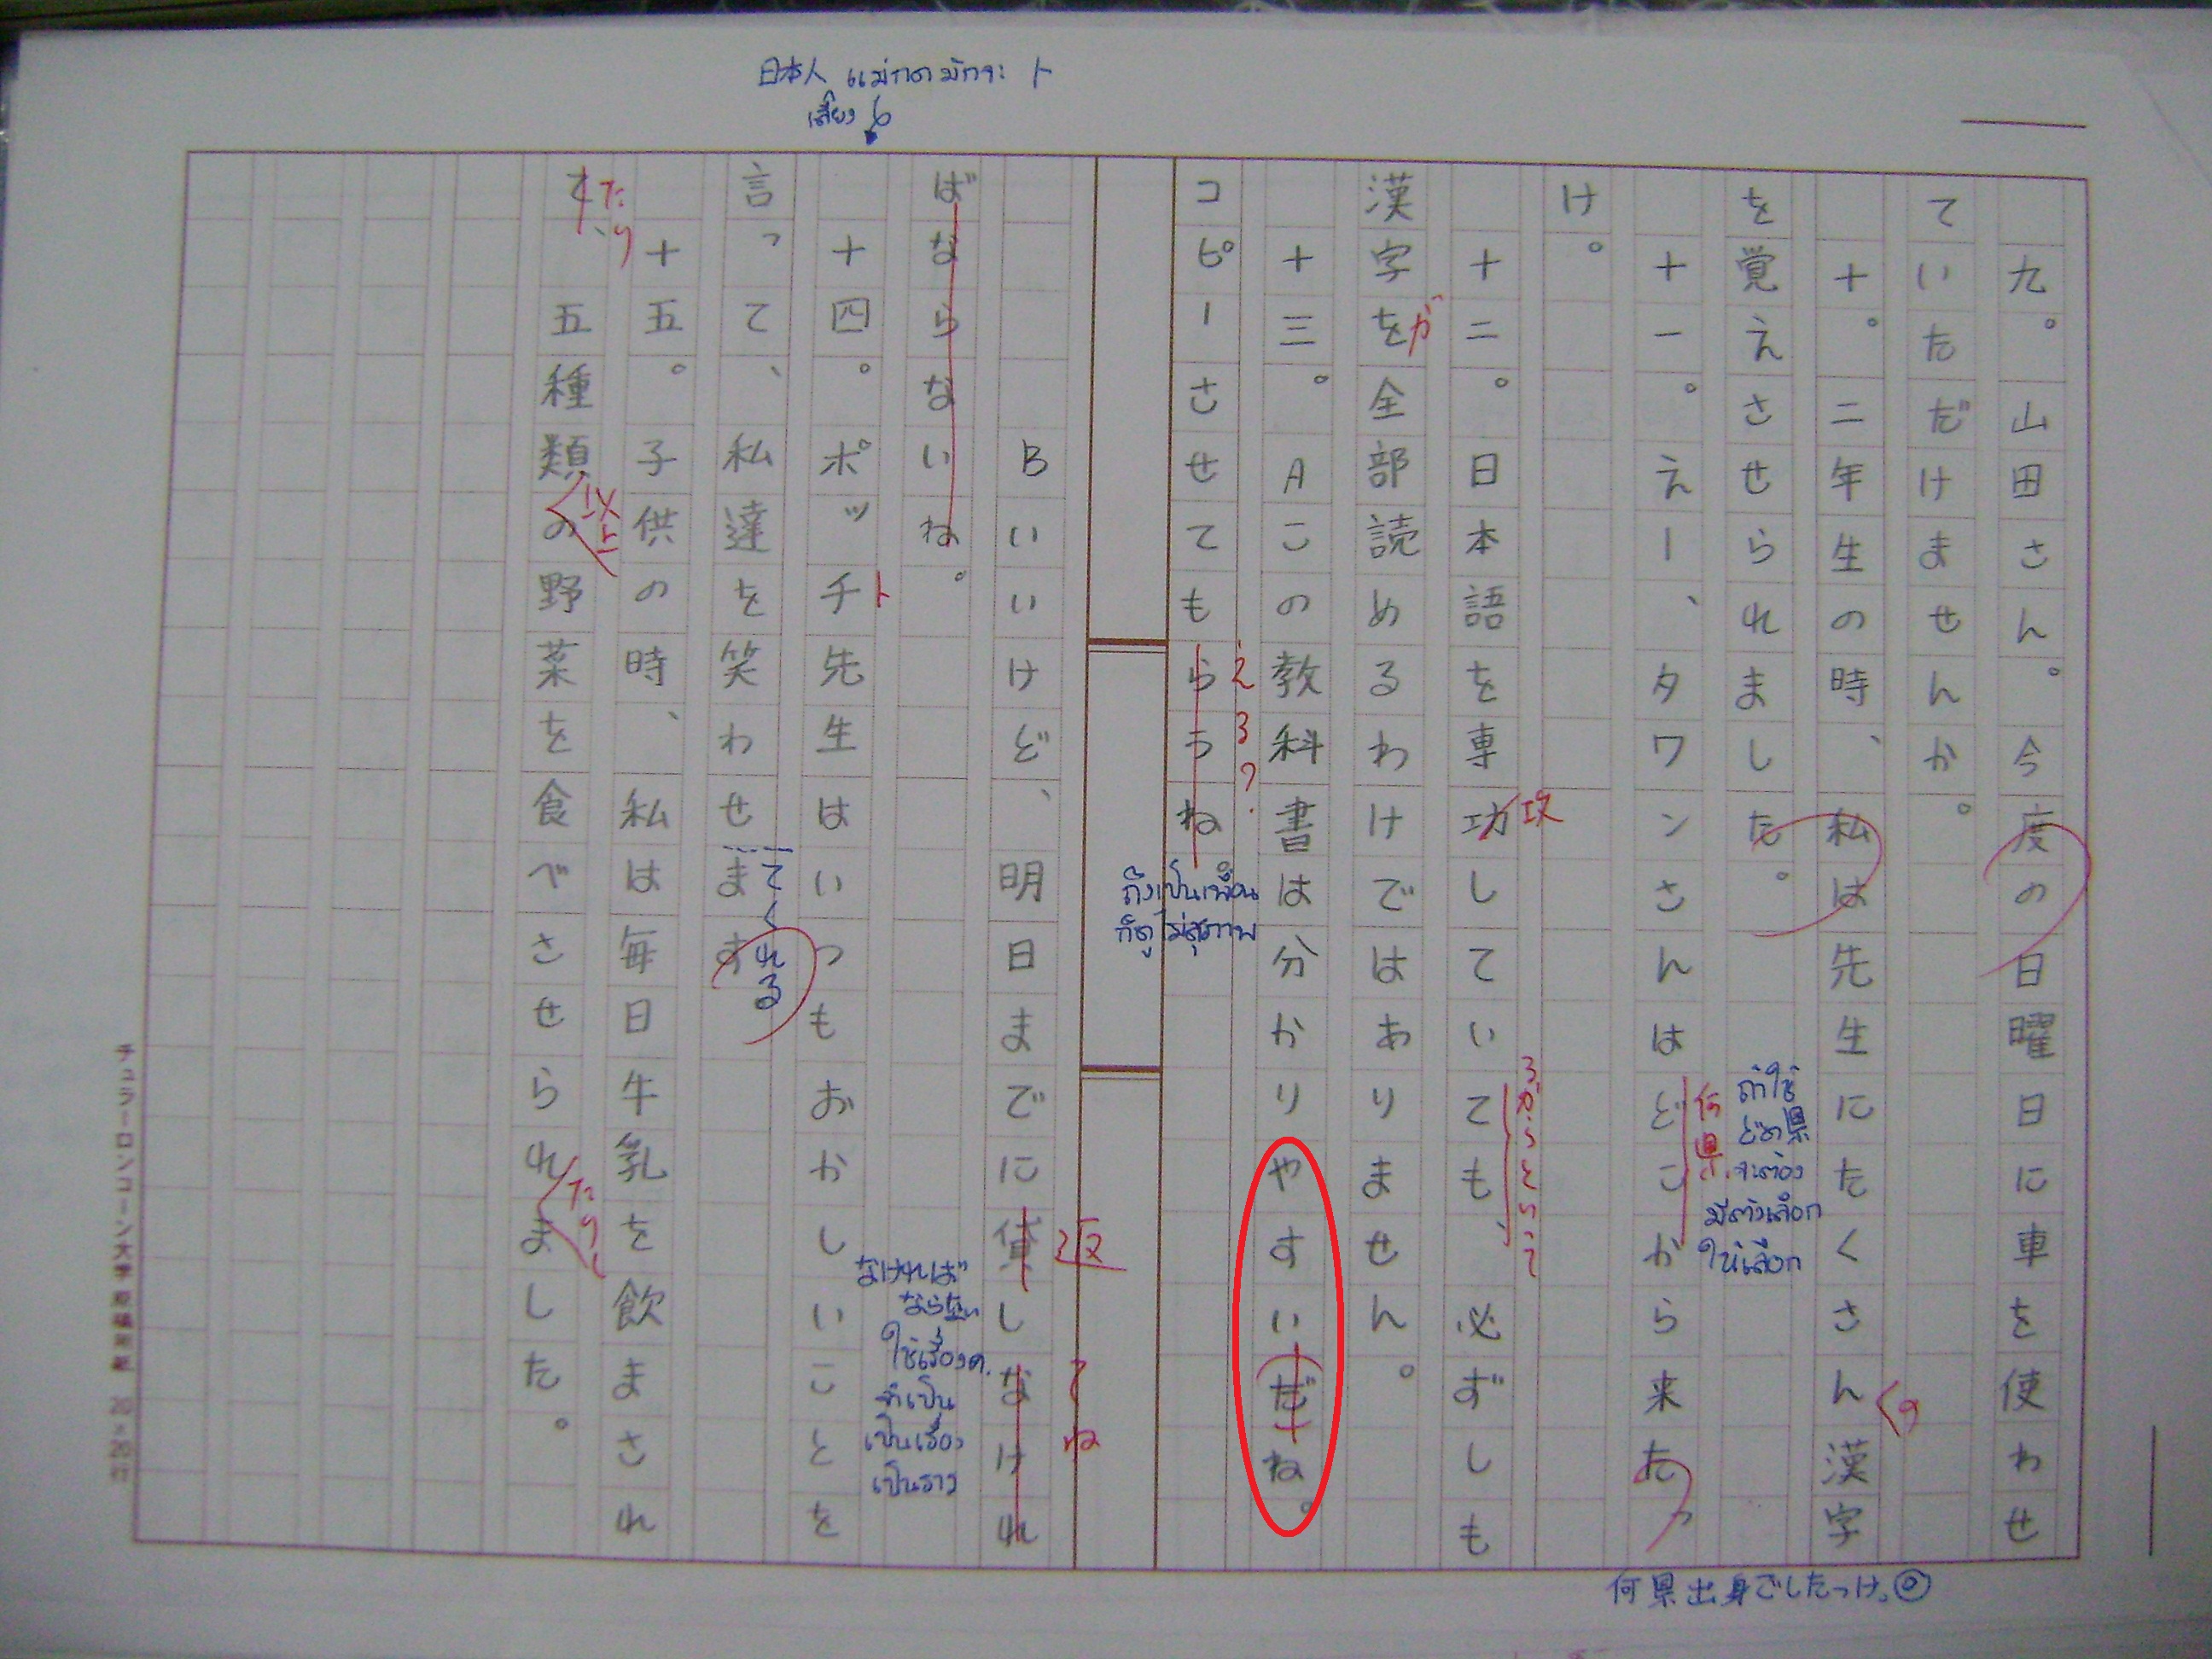 日本人 แม่กด มักจะ ト
เสียง
九。山田さん。今度の日曜日に車を使わせ
ていただけませんか。
十。二年生の時、私は先生にたくさん漢字
の
を覚えさせられました。
十一。えー、タワンさんはどこから来たっ
何県
ถ้าใช้
どの県
จะต้อง
มีตัวเลือก
ให้เลือก
け。
十二。日本語を専功していても、必ずしも
攻
るからといって
漢字を全部読めるわけではありません。
が
十三。Aこの教科書は分かりやすいだね。
コピーさせてもらうね
える?
ถึงเป็นเพื่อน
ก็ดูไม่สุภาพ
Bいいけど、明日までに貸しなけれ
返
てね
ばならないね。
なければ
ならない
ใช้เรื่อง
จำเป็น
เป็นเรื่อง
เป็นราว
十四。ポッチ先生はいつもおかしいことを
ト
言って、私達を笑わせます
てくれる
十五。子供の時、私は毎日牛乳を飲まされ
て、五種類の野菜を食べさせられました。
たり
以上
たりし
何県出身でしたっけ。◎
チュラーロンコーン大学 20×20